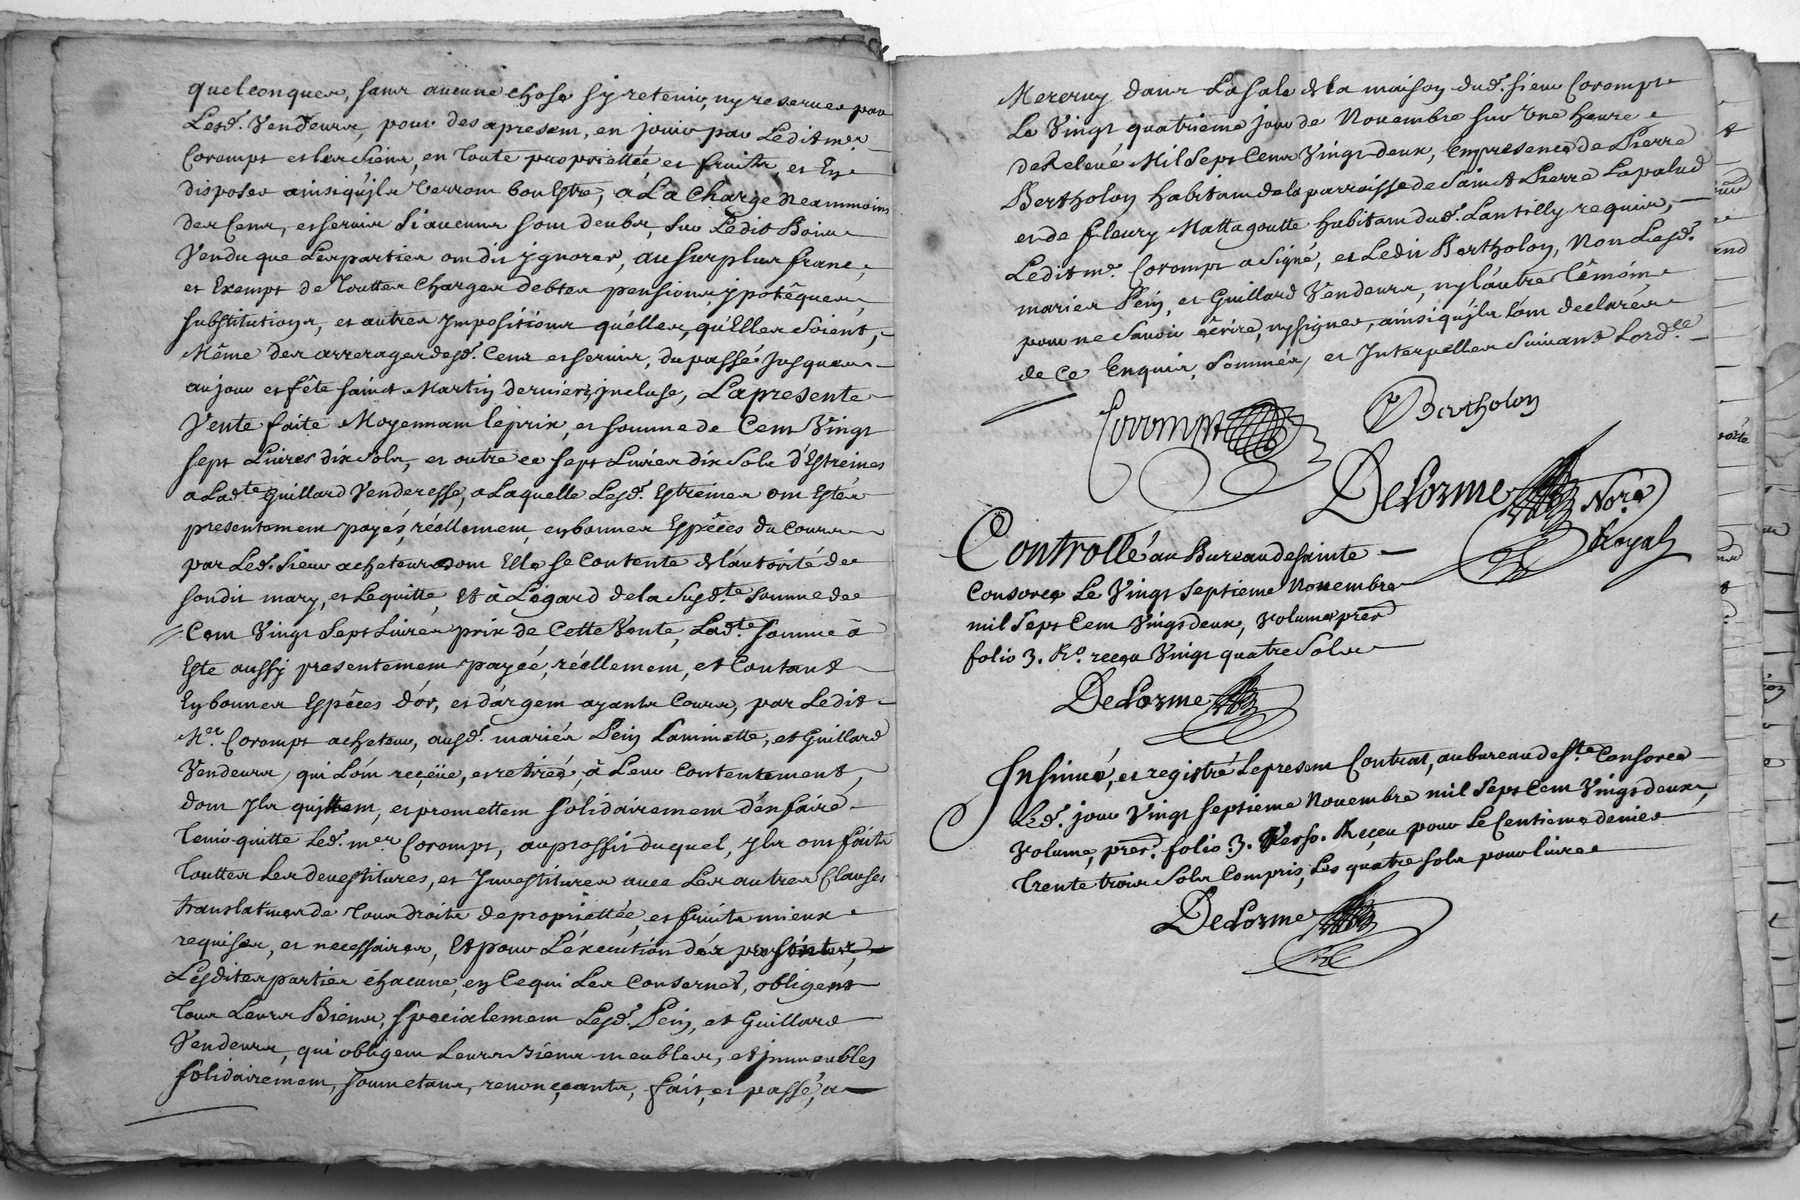 quelconques, sans aucune chose sy retenir, ny reserver par
Lesd. Vendeurs, pour des apresent, en jouir par Ledit mer.
Coromps et les siens, en toute proprietteé et fruits, et En
disposer ainsi qu'jls verront bon Estre, a La Charge neammoins
des Cens, et servis Si aucuns sont deubs, sur Ledit Bois
Vendu que Les parties ont dit jgnorer, au surplus franc,
et Exempt de Touttes Charges debtes pensions ypotêques
substitutions, et autres Jmpositions quélles, qu'Elles soient,
Même des arrerages desd. Cens et servis, du passé Jusques
au jour et fête saint Martin dernier, jncluse, La presente
Vente faite Moyennant le prix, et somme de Cent Vingt
sept Livres dix sols, et outre ce sept Livres dix sols d'Estreines
a Ladte Guillard Venderesse, a Laquelle Lesd. Estreines ont Estés
presentement payés, réellement, en bonnes Espêces du Cours
par Led. sieur acheteur dont Elle se Contente de L'autorité de
sondit mary, et Le quitte, Et à L'égard de la Susdte somme de
Cent Vingt sept Livres prix de Cette Vente, Ladte somme à
Este aussy presentement payéé, réellement, et Contant
En bonnes Espêces d'or, et d'argent ayants Cours, par Ledit
Mer. Coromps acheteur, ausd. mariés Pein Laminette, et Guillard
Vendeurs, qui L'ont reçëüe, et retirée, à Leur Contentement,
dont jls quittent, et promettent solidairement d'en faire
Tenir quitte Led. mer Coromps, au proffit duquel, jls ont faits
Touttes Les devestitures, et Jnvestitures avec Les autres Clauses
translatives de Tous droits de proprietteé, et fruits mieux
requises, et necessaires, Et pour L'éxecution dés presentes,
Lesdites parties éhacune, en Ce qui Les Conserned, obligent
Tous Leurs Biens, specialement Lesd. Pein, et Guillard
Vendeurs, qui obligent Leurs Biens meubles, et jmmeubles
solidairement, soumetans, renonçants, fait, et passé, a
Mercruy dans La sale de la maison dud. sieur Coromps
Le Vingt quatrieme jour de Novembre sur Une heure
de Relevé Mil Sept Cens Vingt deux, En presence de Pierre
Bertholon habitant de la parroisse de Saint Pierre Lapalud
et de fleury Mattagoutte habitant dud. Lantilly requis,
Ledit mer. Coromps a Signé, et Ledit Bertholon, Non Lesd.
mariés Pein, et Guillard Vendeurs, ny l'autre Têmoin
pour ne Savoir écrire, ny signer, ainsi qu'jls L'ont declarés
de Ce Enquis, Sommés, et Interpellés Suivant Lordce
Coromps
Bertholon
DeLorme Nore
Royal
Controllé au Bureau de Sainte
Consorce Le Vingt Septieme Novembre
mil Sept Cent Vingt deux, Volume prest
folio 3. Ro. reçu Vingt quatre Sols
DeLorme
Insinué, et registré Le present Contrat, au bureau de Ste Consorce
Led. jour Vingt Septieme Novembre mil Sept Cent Vingt deux,
Volume, prest. folio. 3. Verso. Reçeu pour Le Centieme denier
Trente trois Sols Compris, Les quatre sols pour livre
DeLorme